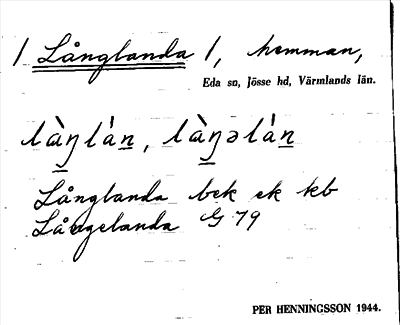 / Långlanda /, hemman,
Eda sn, Jösse hd, Värmlands län.
làŋlán, làŋəlán
Långlanda bek ek kb
Långelanda G 79
PER HENNINGSSON 1944.